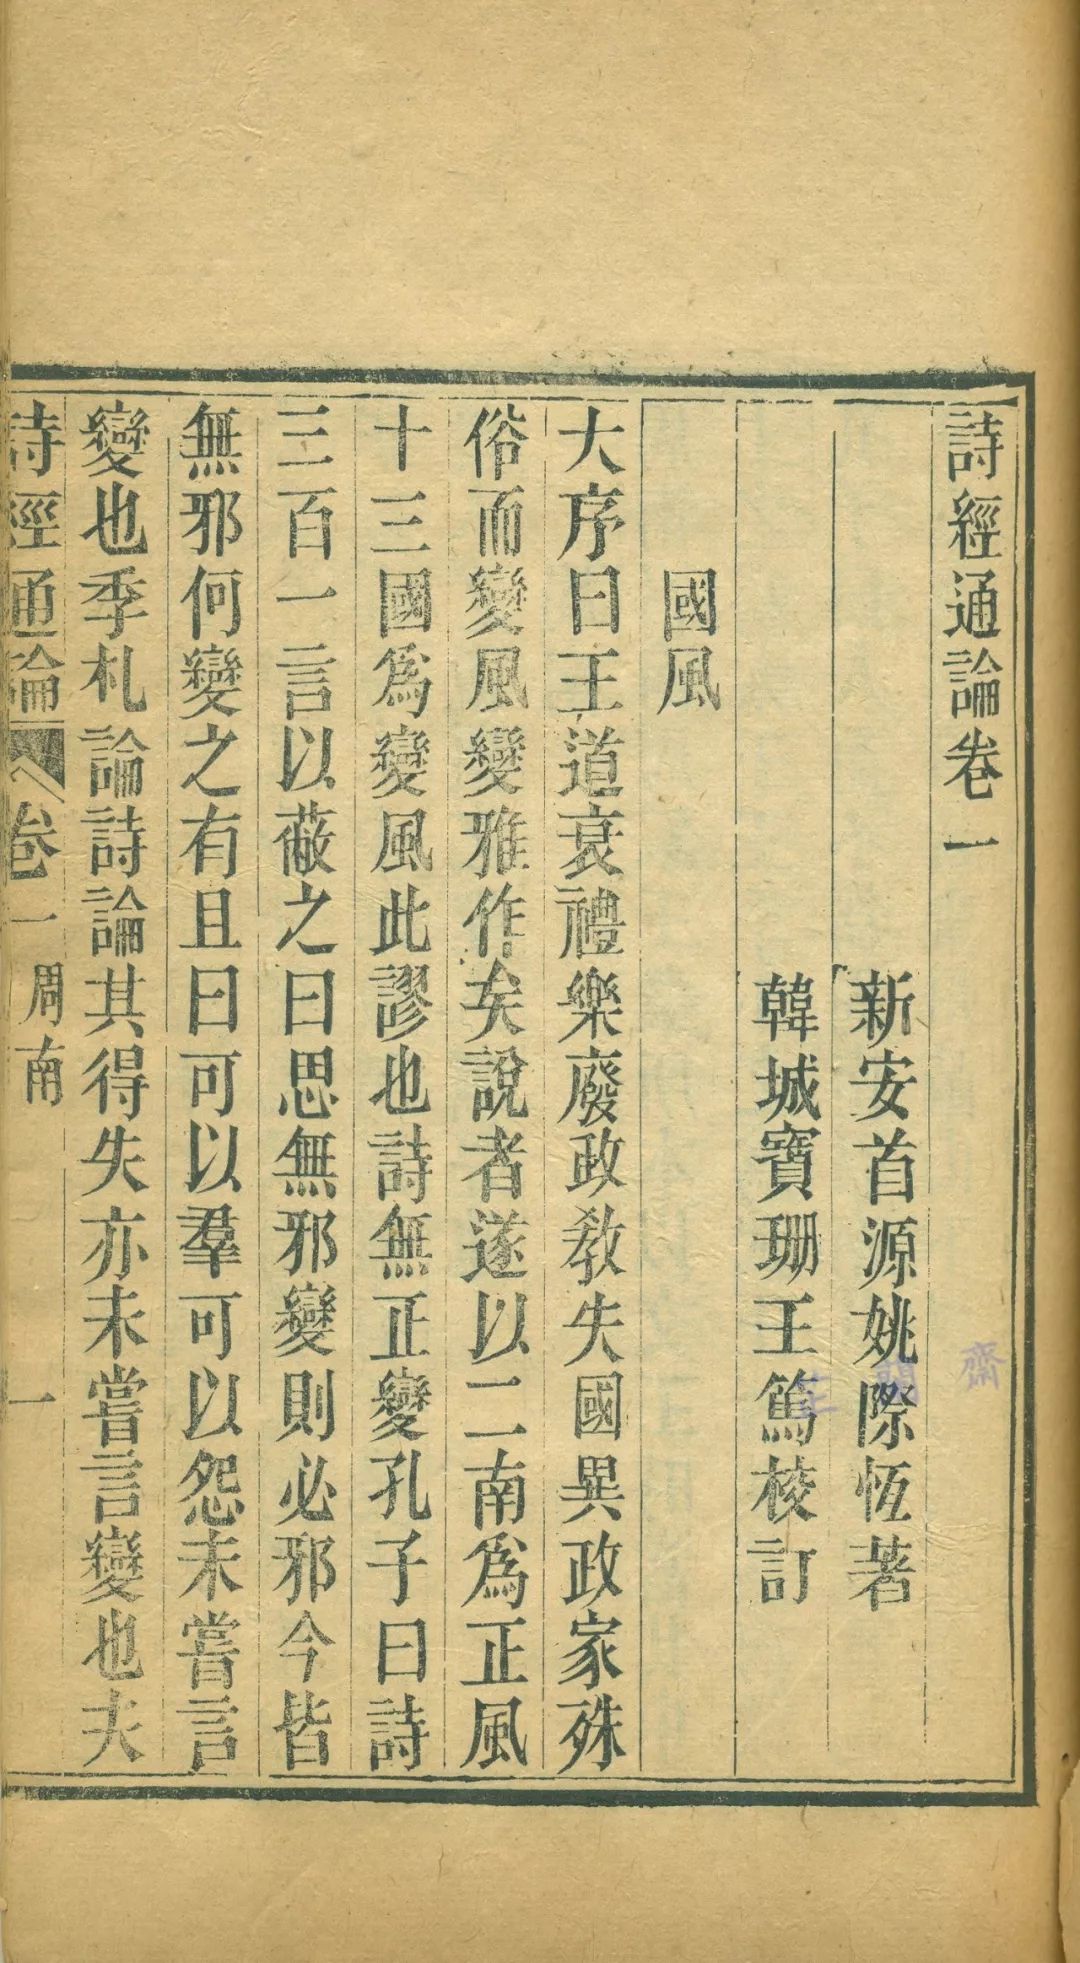 詩經通論卷一
新安首源姚際恆著
韓城寶珊王篤校訂
國風
大序曰王道衰禮樂廢政教失國異政家殊
俗而變風變雅作矣說者遂以二南為正風
十三國為變風此謬也詩無正變孔子曰詩
三百一言以蔽之曰思無邪變則必邪今皆
無邪何變之有且曰可以羣可以怨未嘗言
變也季札論詩論其得失亦未嘗言變也夫
詩經通論 卷一 周南 一
齋